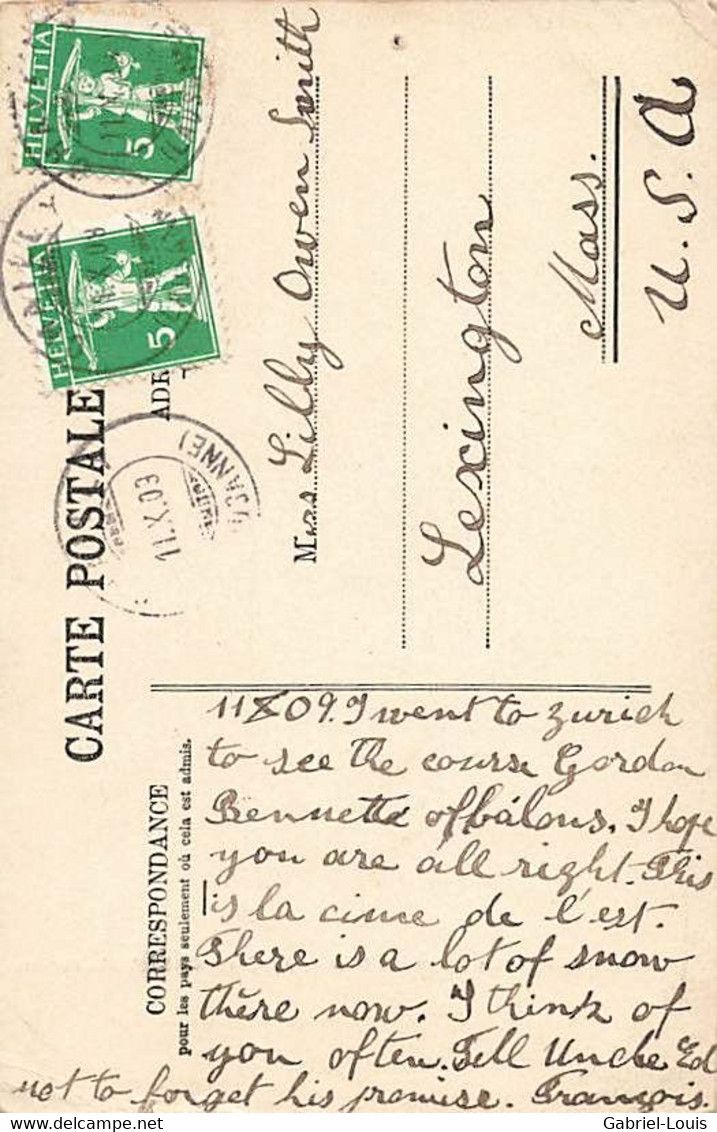 HELVETIA
5
HELVETIA
5
CARTE POSTALE
11.X.09
CORRESPONDANCE
pour les pays seulement où cela est admis.
Mrs Lilly Owen Smith
Lexington
Mass.
U.S.A
11 X 09. I went to Zurich
to see the course Gordon
Bennett of bálons. I hope
you are all right. This
is la cime de l'est.
There is a lot of snow
there now. I think of
you often. Tell Uncle Ed
not to forget his promise. François.
Gabriel-Louis